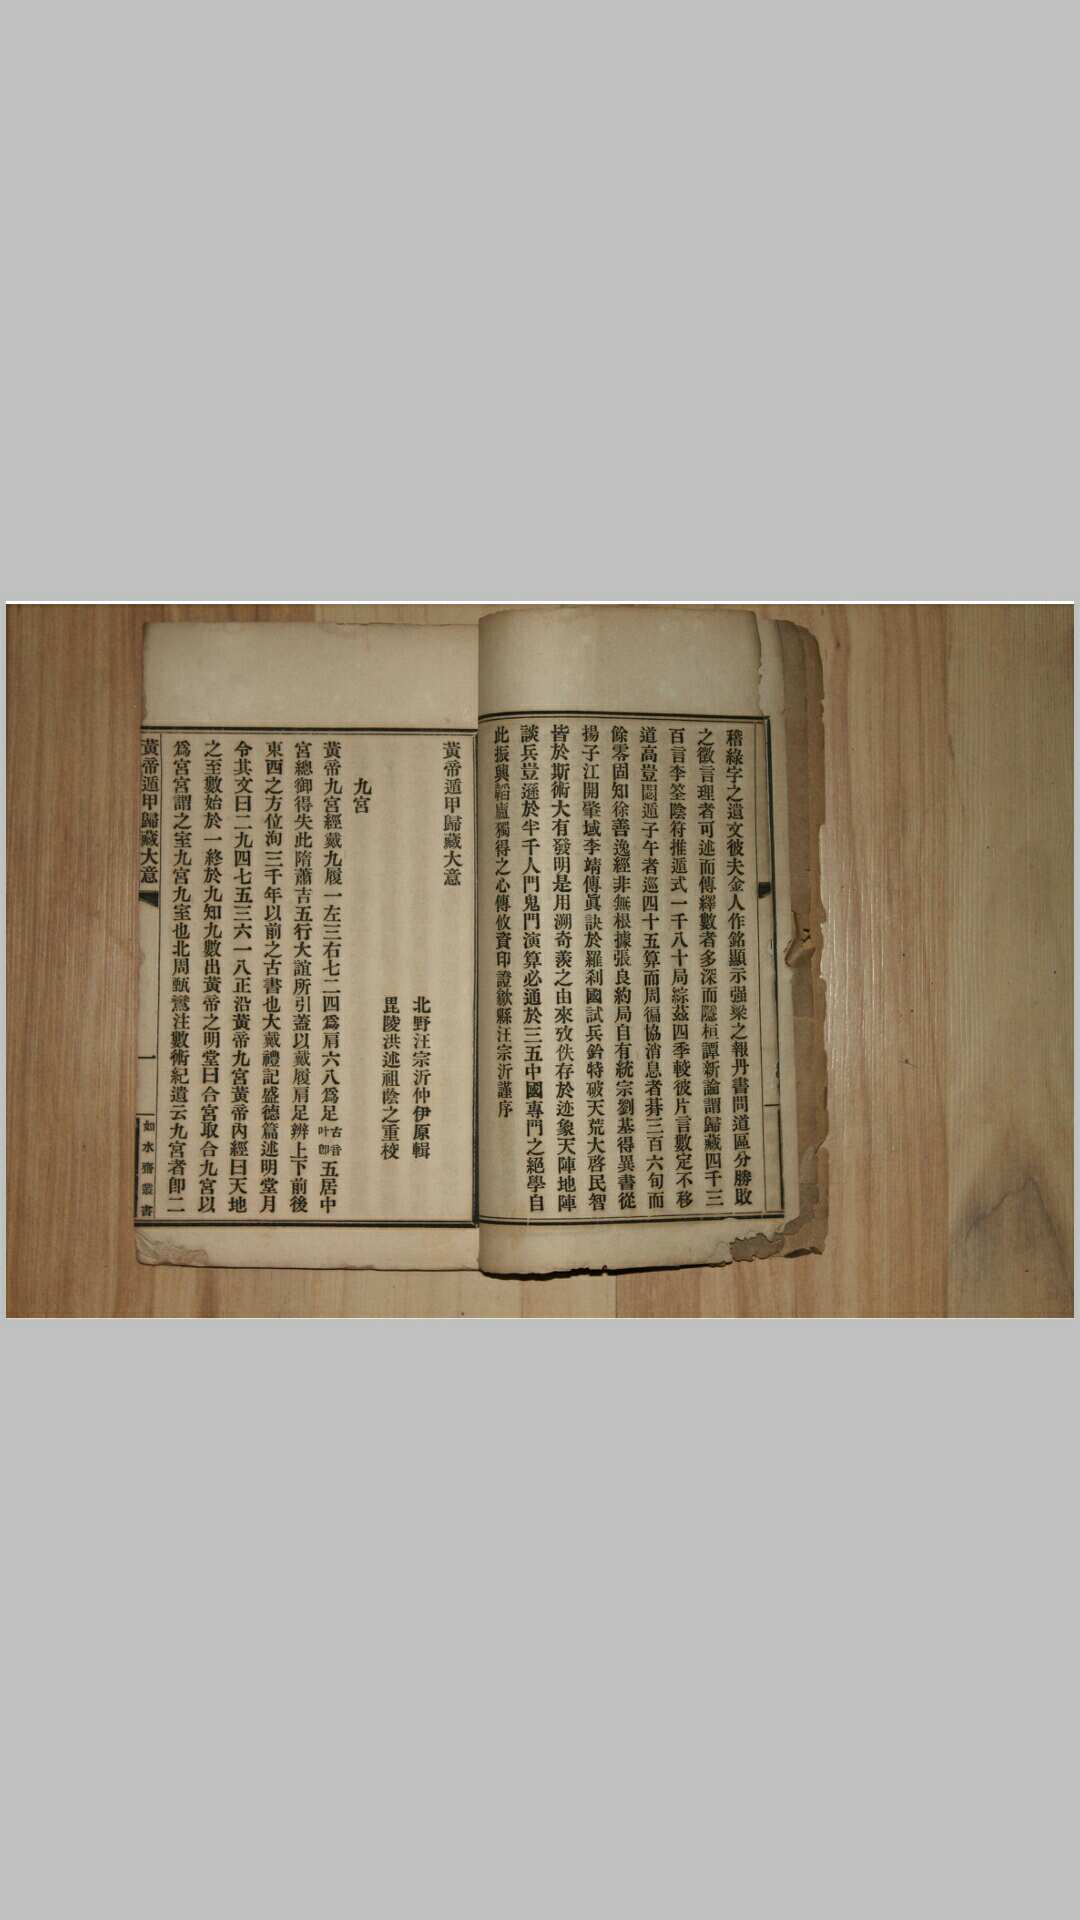 稽綠字之遺文彼夫金人作銘顯示强梁之報丹書問道區分勝敗
之徵言理者可述而傳繹數者多深而隱桓譚新論謂歸藏四千三
百言李筌陰符推遁式一千八十局綜茲四季較彼片言數定不移
道高豈閟遁子午者巡四十五算而周徧協消息者朞三百六旬而
餘零固知徐善逸經非無根據張良約局自有統宗劉基得異書從
揚子江開肇域李靖傳眞訣於羅刹國試兵鈐特破天荒大啓民智
皆於斯術大有發明是用溯奇羨之由來攷佚存於迹象天陣地陣
談兵豈遜於半千人門鬼門演算必通於三五中國專門之絕學自
此振興韜廬獨得之心傳攸資印證歙縣汪宗沂謹序
黃帝遁甲歸藏大意
北野汪宗沂仲伊原輯
毘陵洪述祖蔭之重校
九宮
黃帝九宮經戴九履一左三右七二四爲肩六八爲足古音叶卽五居中
宮總御得失此隋蕭吉五行大誼所引蓋以戴履肩足辨上下前後
東西之方位洵三千年以前之古書也大戴禮記盛德篇述明堂月
令其文曰二九四七五三六一八正沿黃帝九宮黃帝內經曰天地
之至數始於一終於九知九數出黃帝之明堂曰合宮取合九宮以
爲宮宮謂之室九宮九室也北周甄鸞注數術紀遺云九宮者卽二
黃帝遁甲歸藏大意
一
如水齋叢書